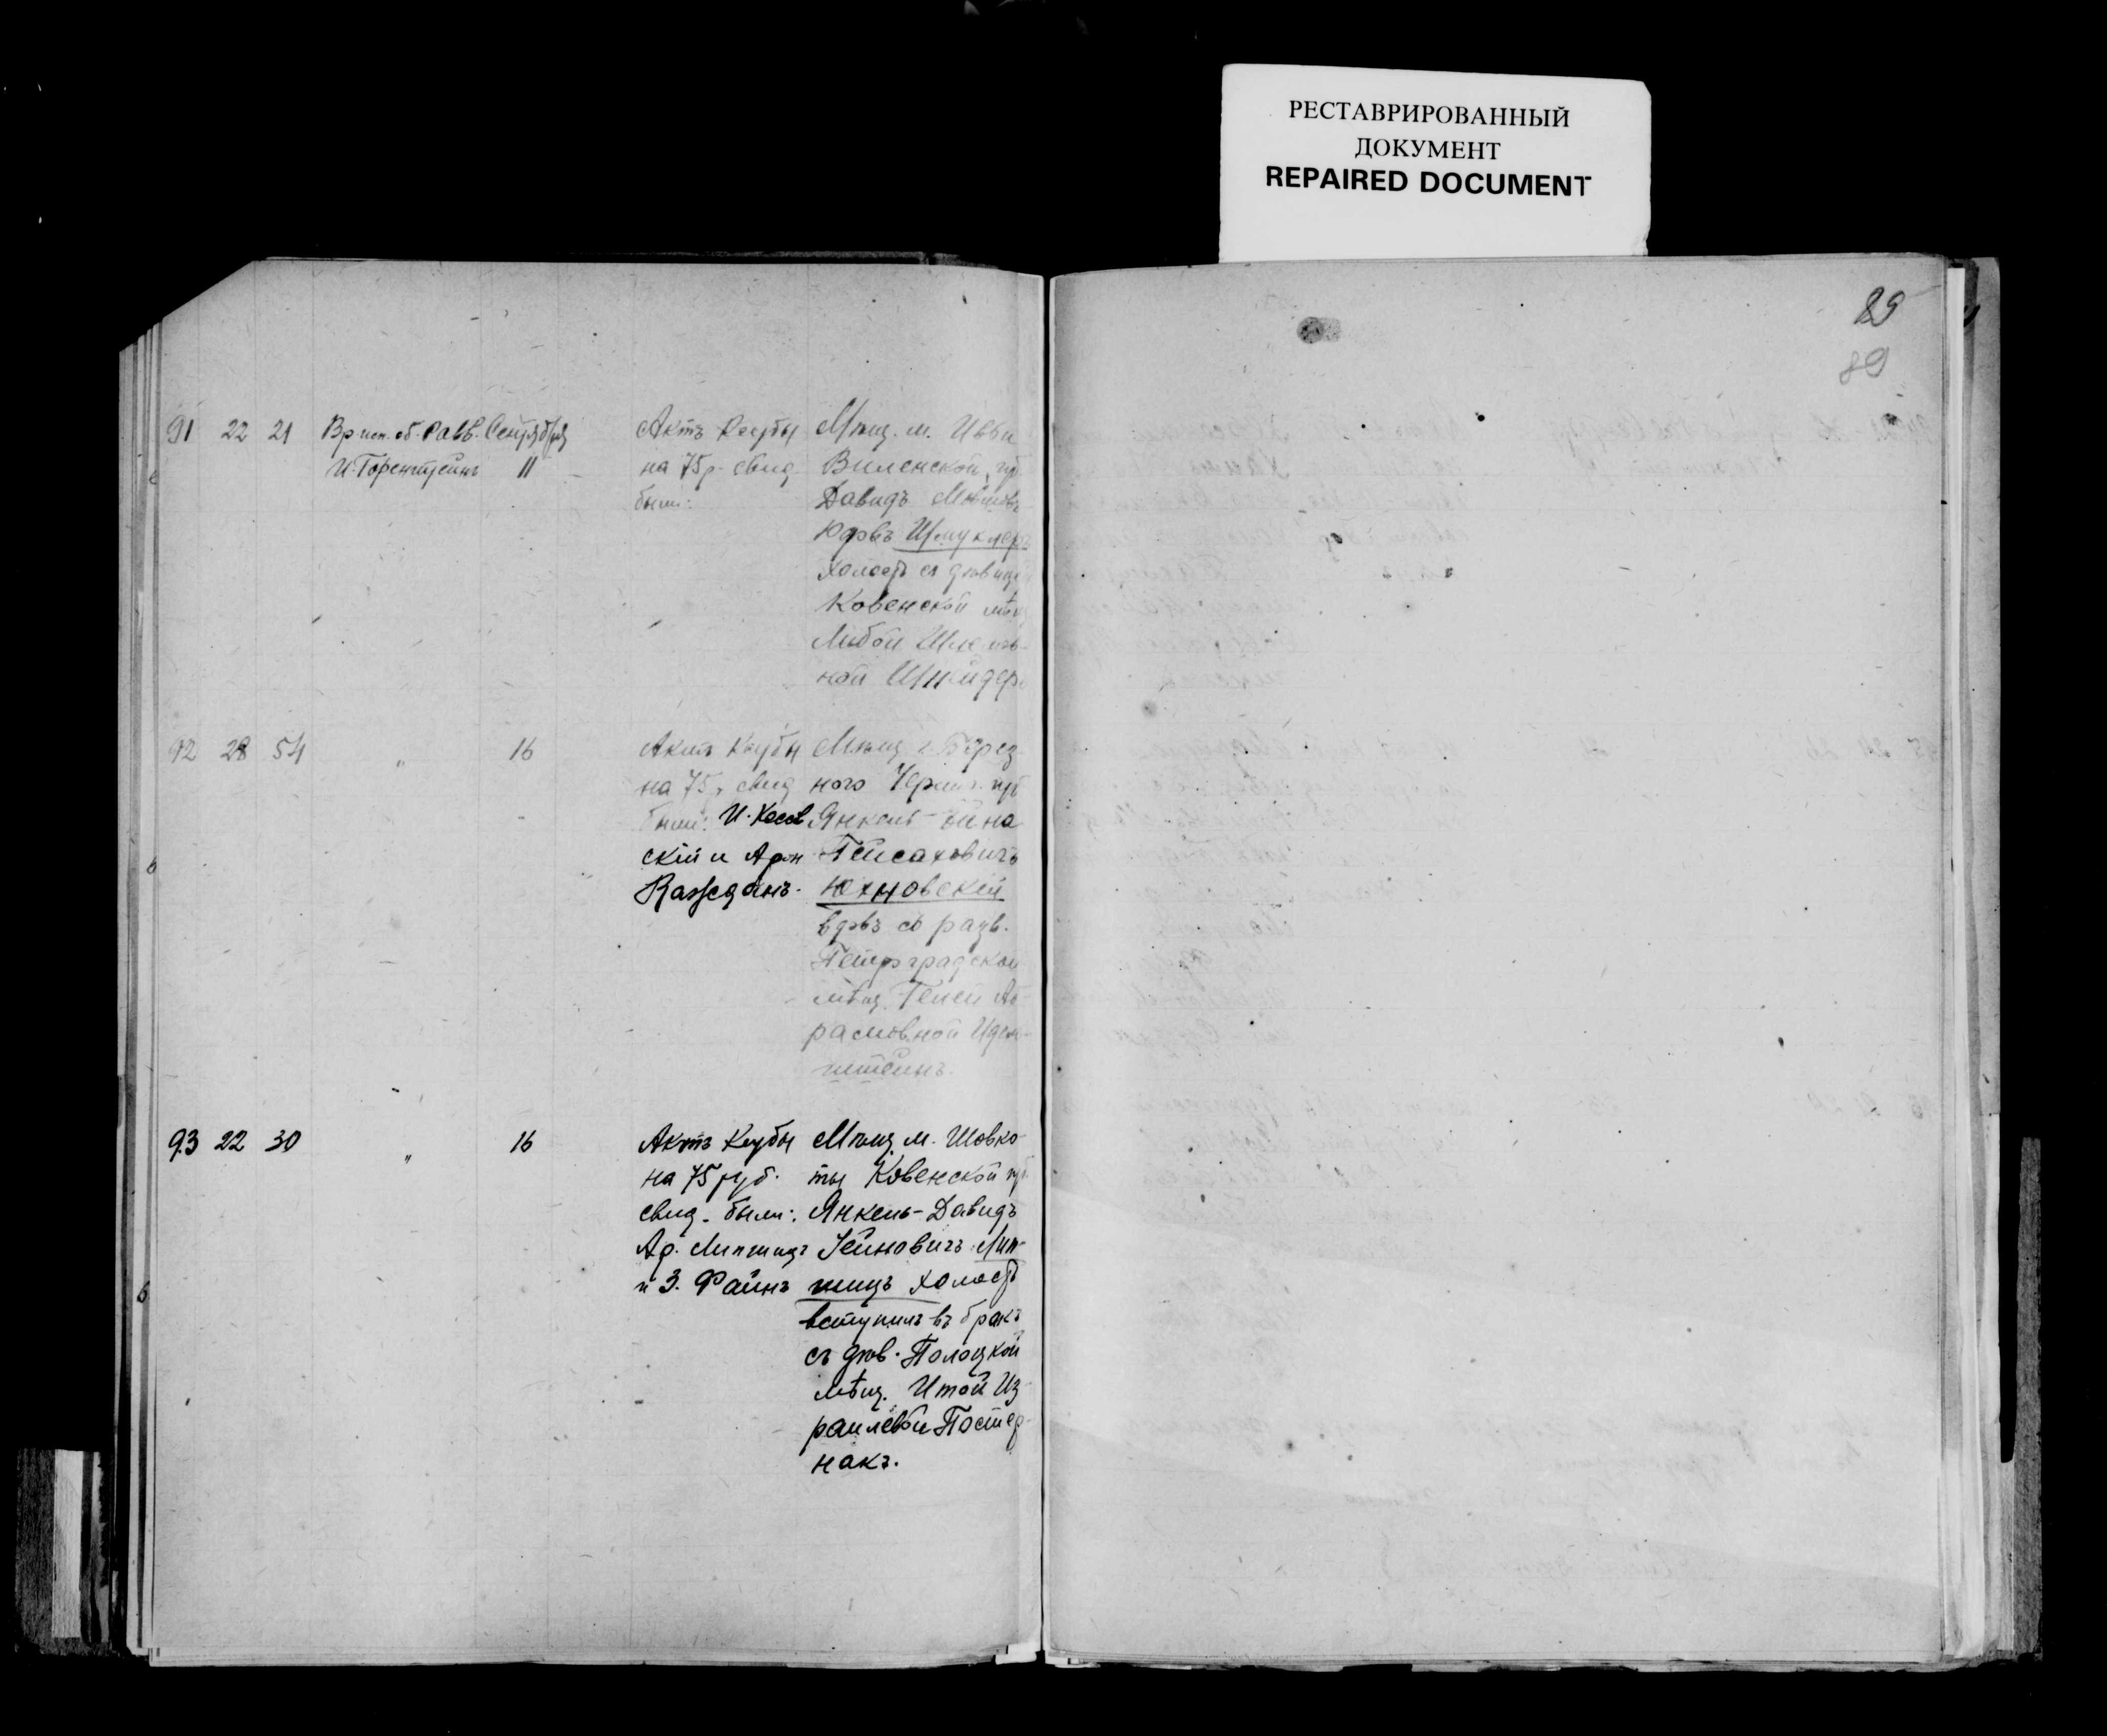 РЕСТАВРИРОВАННЫЙ
ДОКУМЕНТ
REPAIRED DOCUMENT
29
89
91 22 21 Вр. исп. об. Равв. Сентября
И. Горенштейнъ 11
Актъ Ксубы
на 75 р. свид
были:
Мѣщ. м. Ивби
Виленской губ
Давидъ
Юдовъ Шмуклеръ
холостъ съ дѣвицей
Ковенской мѣщ
Либой
ной Шнейдеръ
92 28 54 " 16
Актъ Ксубы
на 75 р. свид
были: И. Косов
скій и Арон
Кажданъ.
Мѣщ. г. Берез-
ного Черниг. губ
Янкель-
Пейсаховичъ
Юхновскій
вдовъ съ разв.
Петроградской
мѣщ. Аб-
рамовной
штейнъ.
93 22 30 " 16
Актъ Ксубы
на 75 руб.
свид. были:
Ар. Липшицъ
и З. Файнъ
Мѣщ. м. Шовко-
ты Ковенской губ
Янкель-Давидъ
Лип-
шицъ холостъ
вступилъ въ бракъ
съ дѣв. Полоцкой
мѣщ. Итой Из-
раилевой Постер-
накъ.